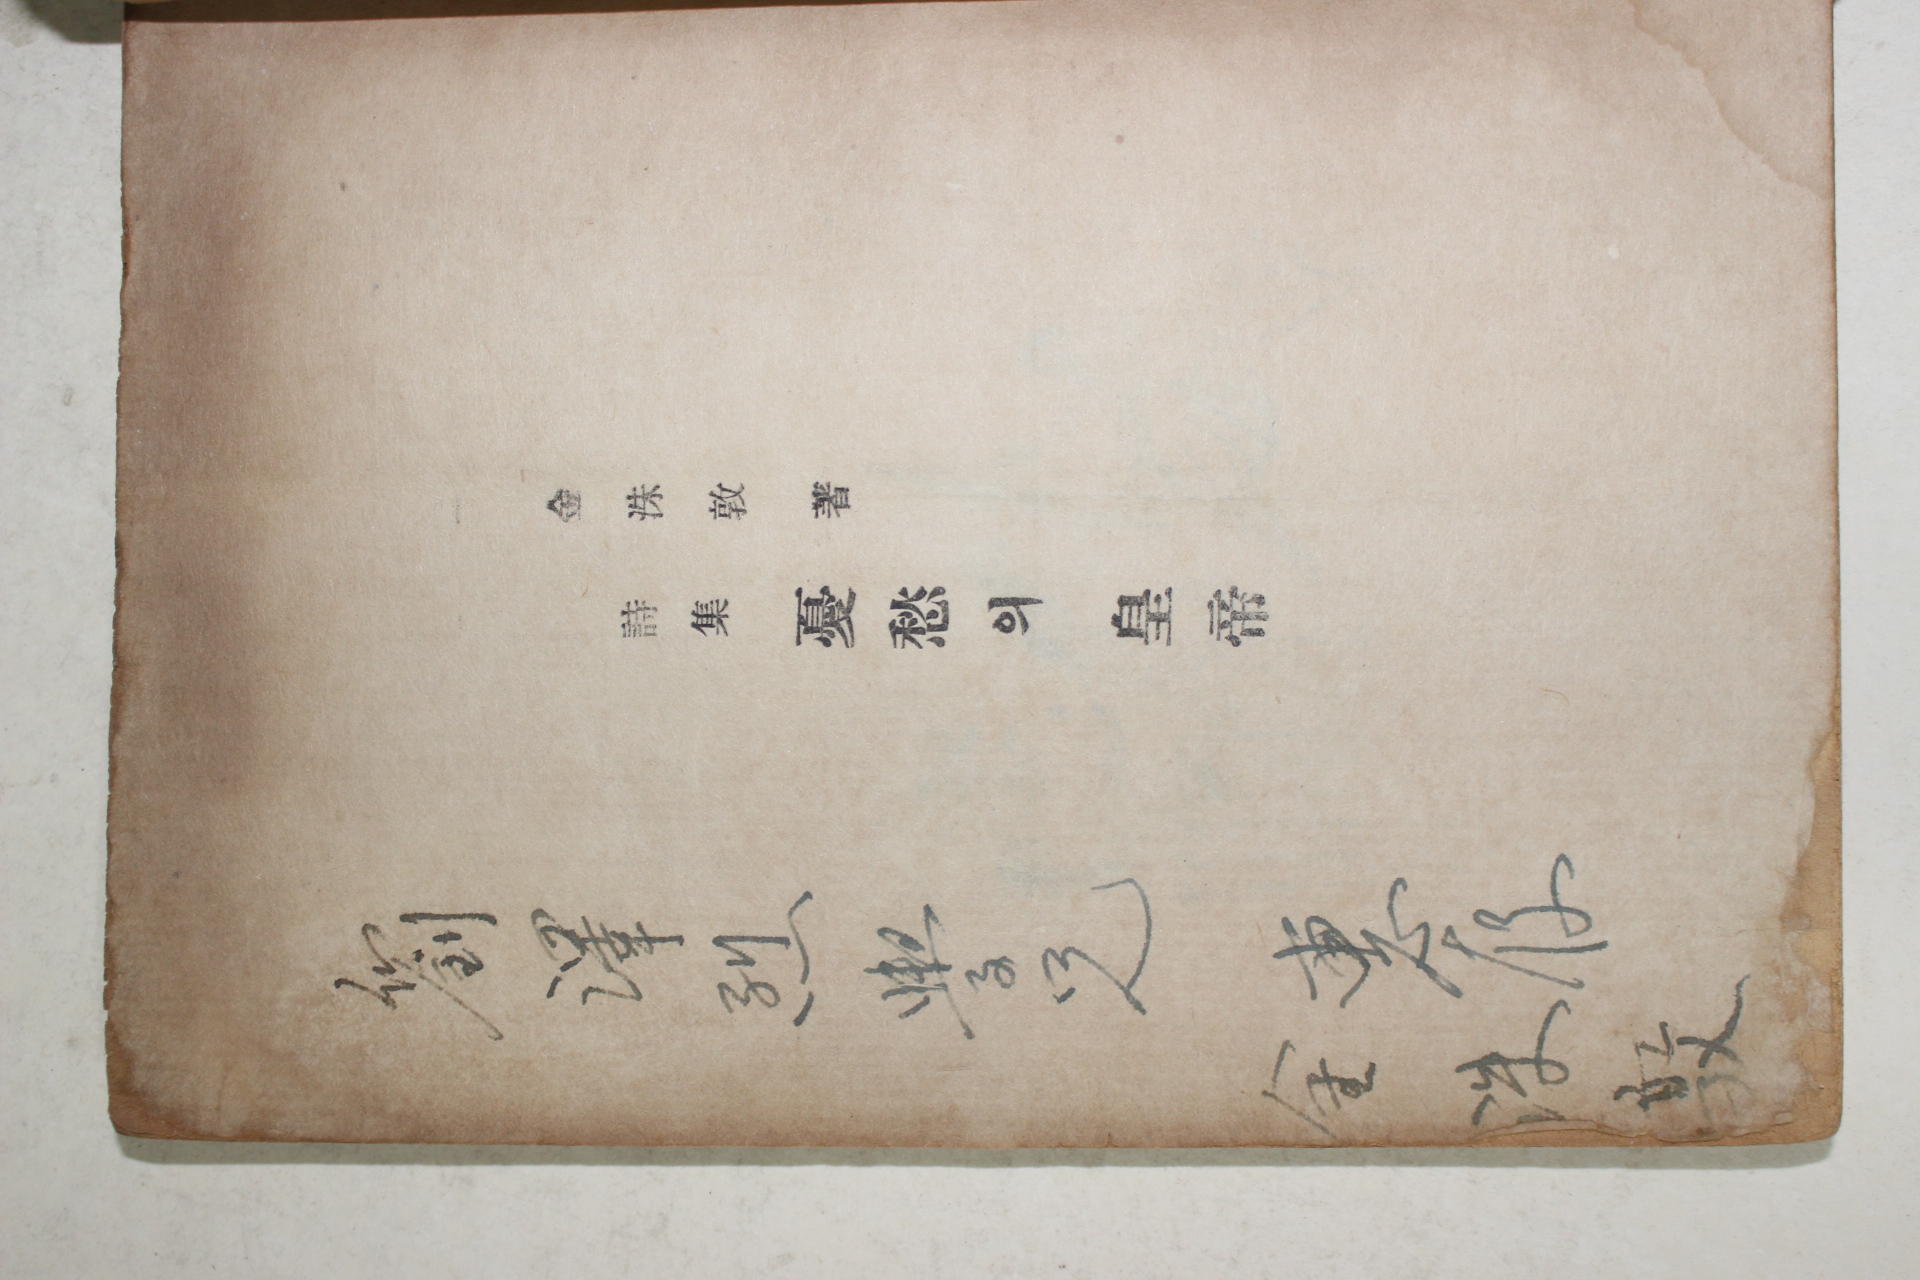 金洙敦 著
詩集 憂愁의 皇帝
劉澤烈 學兄 惠存
金洙敦